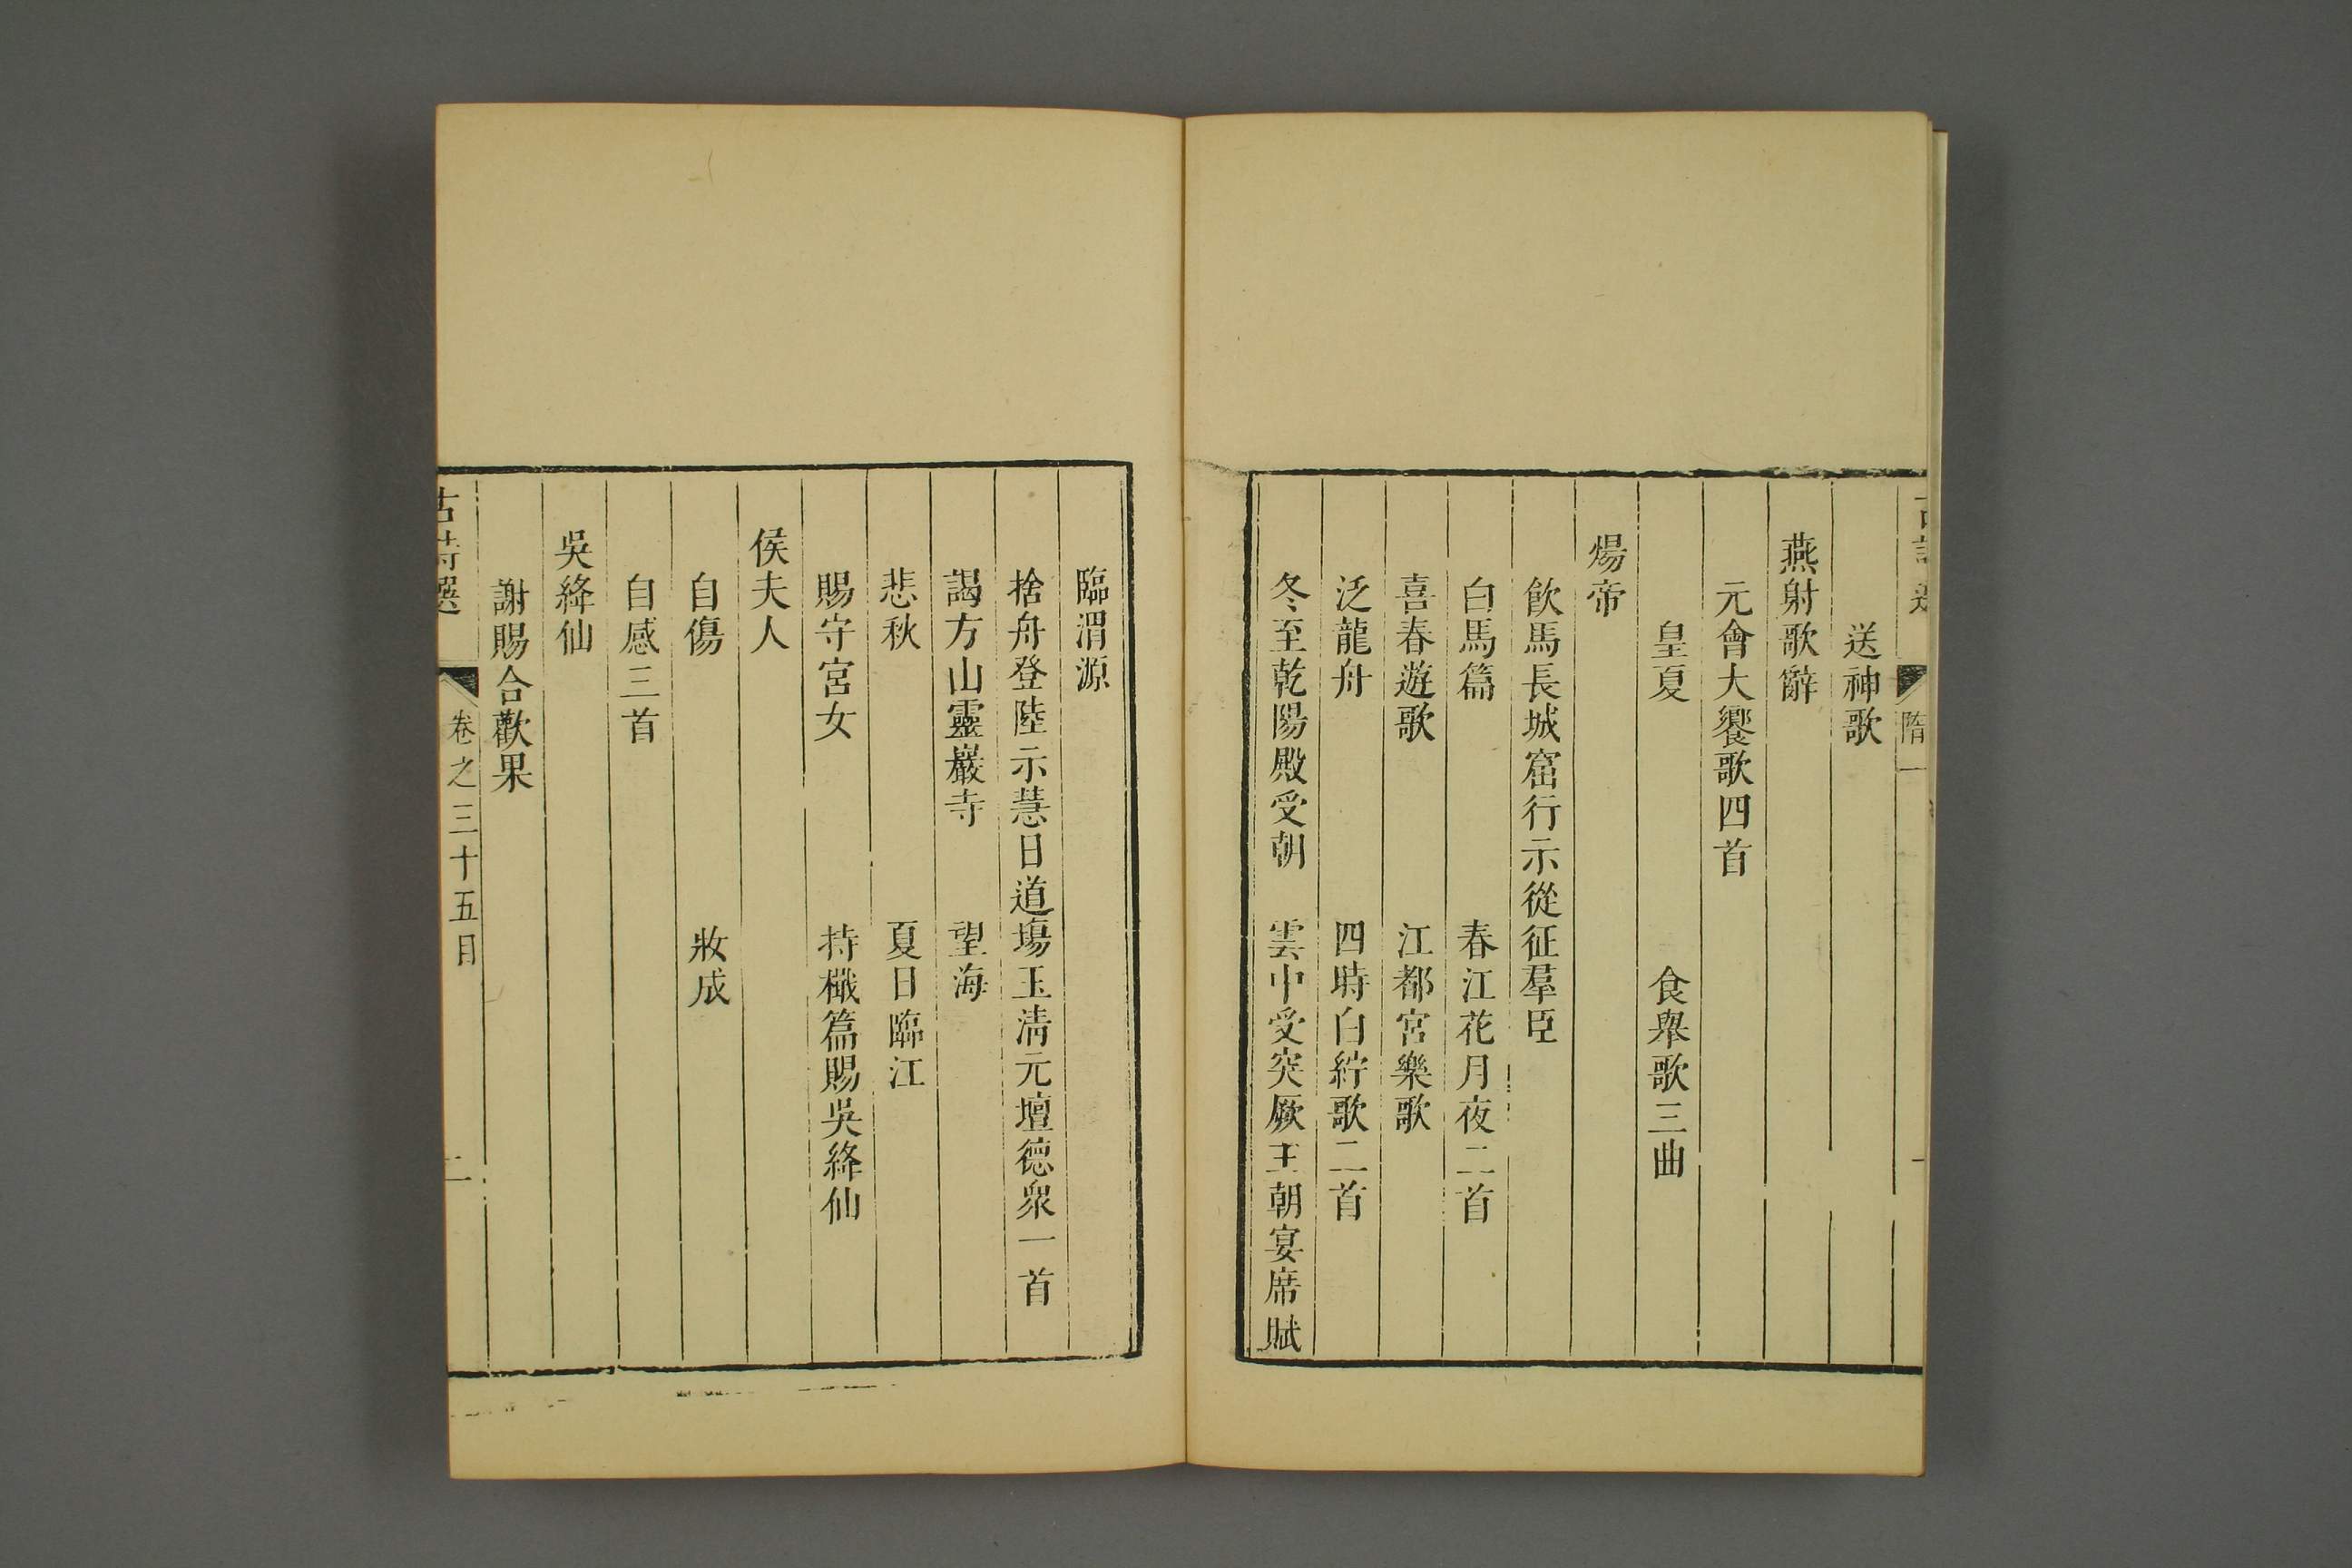 隋一
送神歌
燕射歌辭
元會大饗歌四首
皇夏　食舉歌三曲
煬帝
飲馬長城窟行示從征羣臣
白馬篇　春江花月夜二首
喜春遊歌　江都宮樂歌
泛龍舟　四時白紵歌二首
冬至乾陽殿受朝　雲中受突厥王朝宴席賦
臨渭源
捨舟登陸示慧日道塲玉清元壇德衆一首
謁方山靈巖寺　望海
悲秋　夏日臨江
賜守宮女　持檝篇賜吳絳仙
侯夫人
自傷　妝成
自感三首
吳絳仙
謝賜合歡果
古詩選　卷之三十五目　二